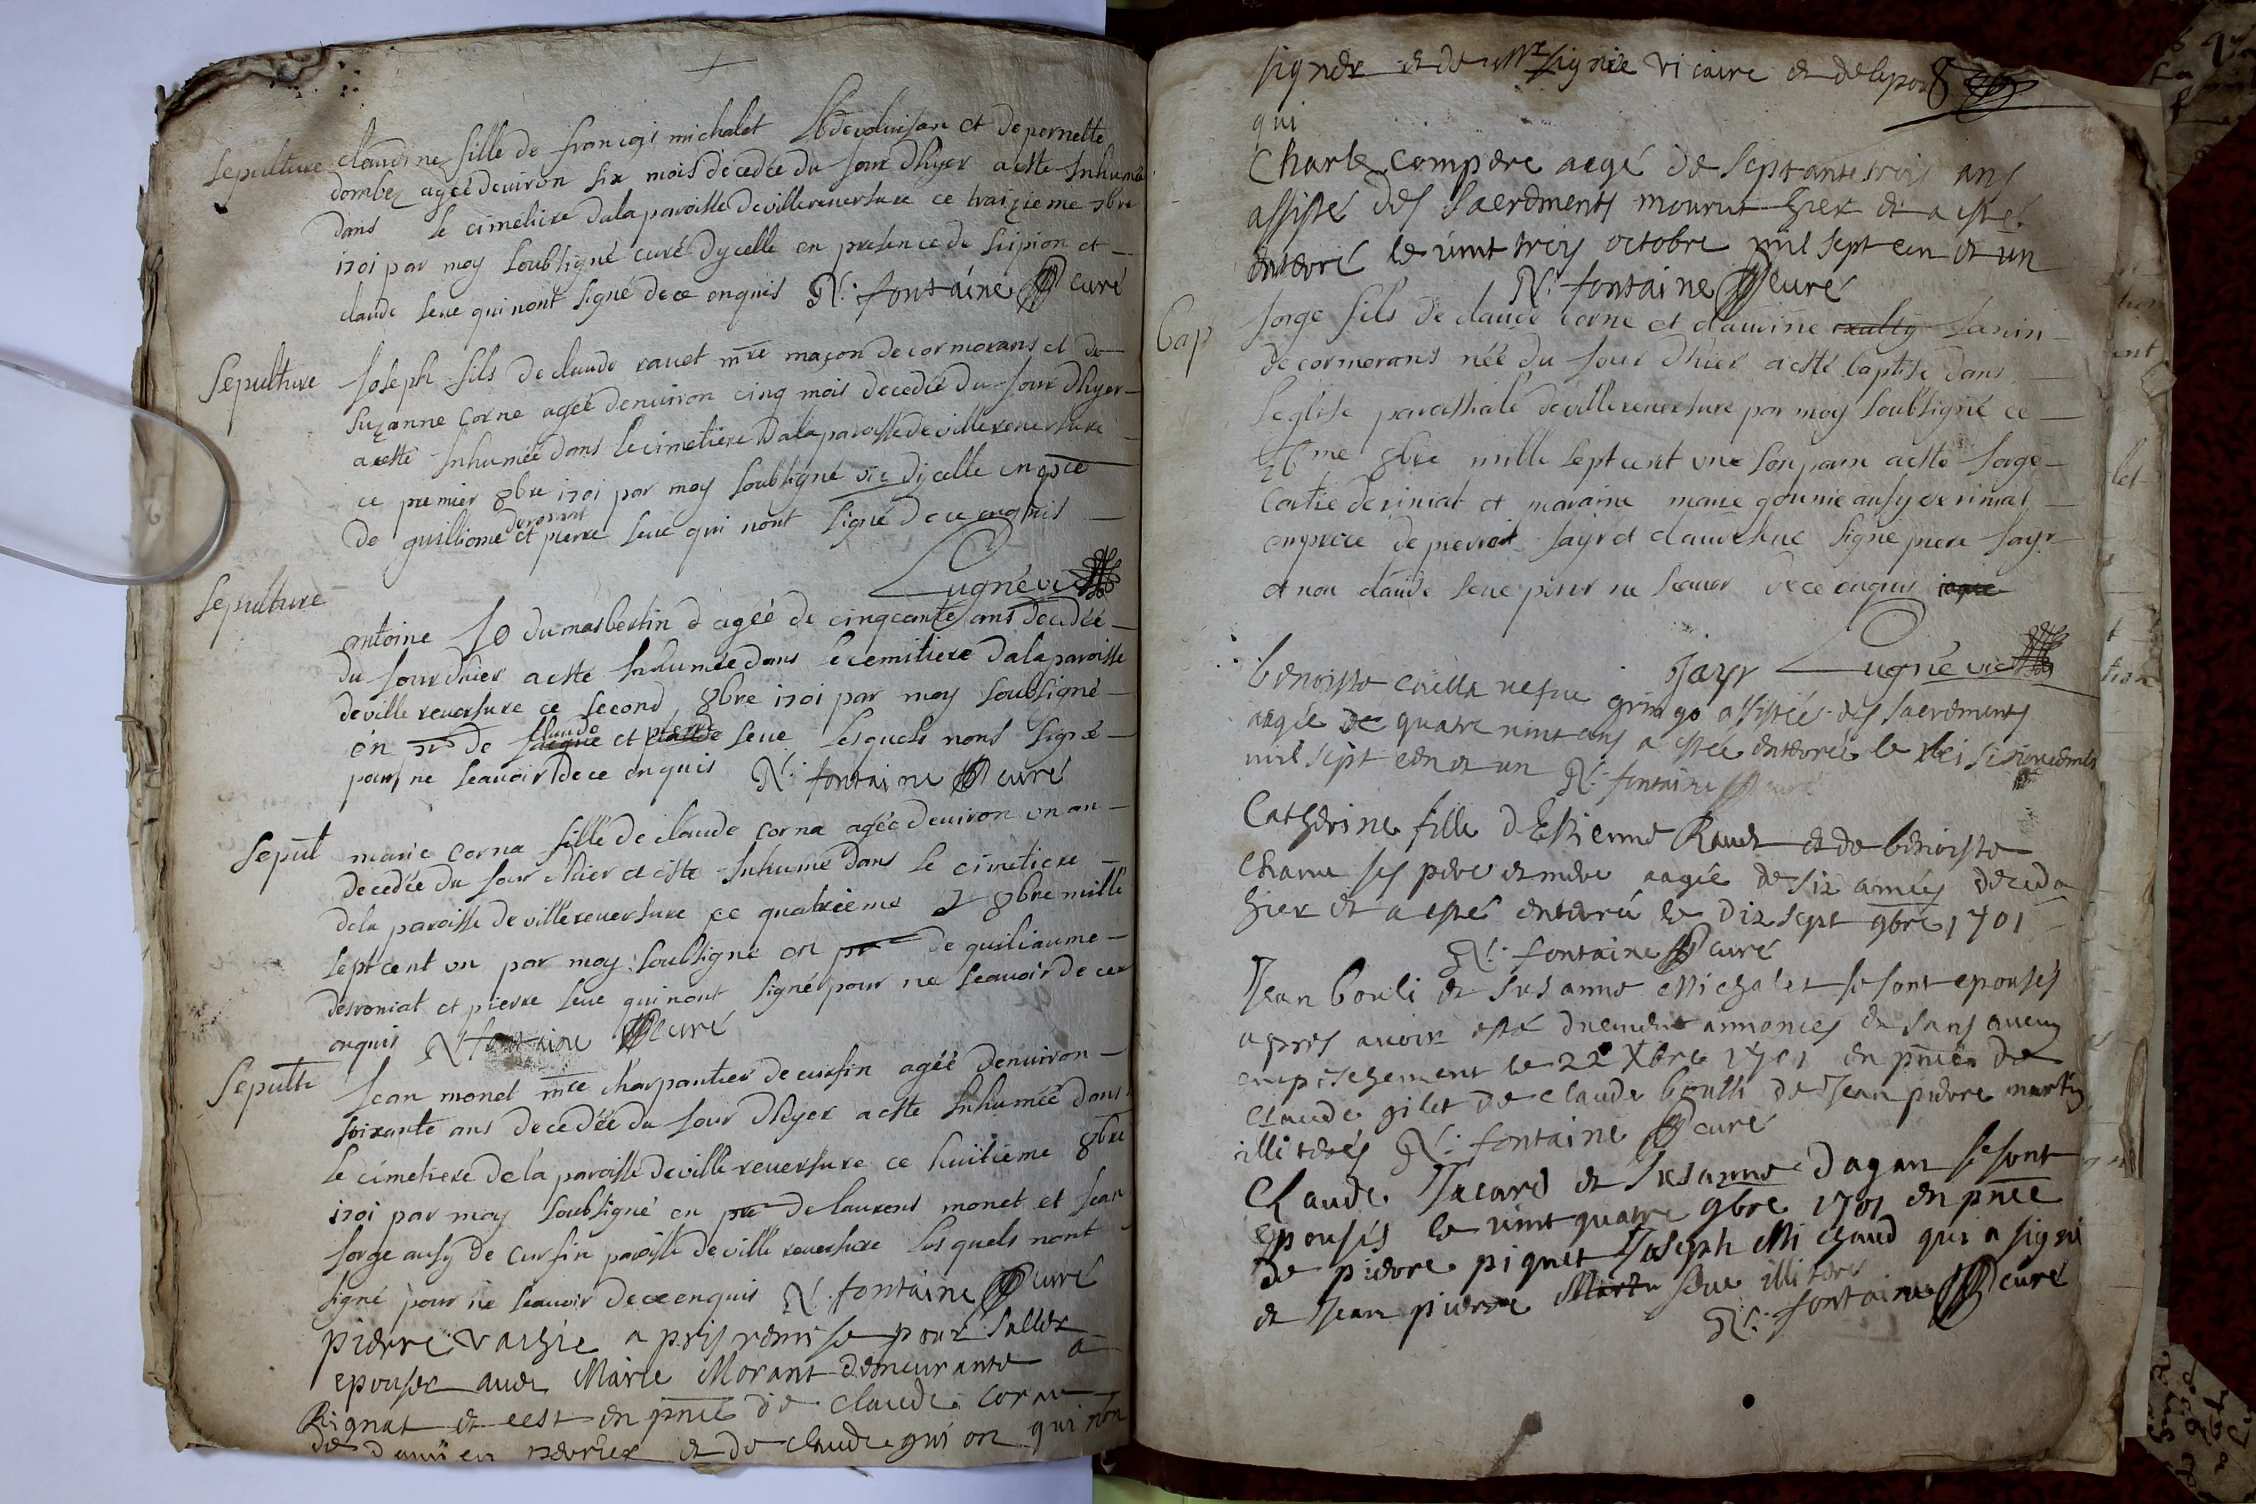 Sepulture claudine fille de francois michalet de voluisan et de pernette
dombez agéé denviron six mois décédée du Jour dhyer a esté Inhumée
dans le cimetiere dala paroisse devillereversure ce traizieme 7bre
1701 par moy soubsigné curé dycelle en presence de sipion et
claude seue qui nont signé de ce enquis N: fontaine curé
Sepulture Joseph fils de claude rauet mre maçon de cormorans et de
Suzanne Corne agéé denuiron cinq mois decedéé du Jour dhyer
a esté Inhuméé dans le cimetiere dala paroisse devillereversure
ce premier 8bre 1701 par moy soubsigné vic dycelle en pce
de guilliome et pierre seue qui nont signé de ce enquis
Lugné vic
Sepulture
antoine Jo du masbertin d agéé de cinqcante ans decedéé
du Jour dhier a esté Inhuméé dans le cemitiere dala paroisse
deville reuersure ce second 8bre 1701 par moy soubsigné
en de claude et seue lesquels nont signé
pour ne scauoir de ce enquis N: fontaine curé
Sepult marie corna fille de claude corna agéé deuiron un an
decedéé du Jour dhier et esté Inhumé dans le cimetiere
dela paroisse de villereuersure ce quatrieme 8bre mille
sept cent un par moy soubsigné en de guiliaume
desroniat et pierre seue qui nont signé pour ne scauoir de ce
enquis N fontaine curé
Sepult Jean monet mre charpantier de cursin agéé denuiron
soixante ans decedéé du Jour dhyer a esté Inhuméé dans
le cimetiere de la paroisse deville reuersure ce huitieme 8bre
1701 par moy soubsigné en pre de laurens monet et Jean
Jorge ausy de cursin paroisse deville reuersure lesquels nont
signé pour ne scauoir de ce enquis N: fontaine curé
pierre vachie a pris remise pour saller
epouser auec Marie Morant demeurante a
Rignat et cest en pnce de claude coran
de et de claude qui non
signer et de Mr vicaire et
qui
Charle compere aagé de septante trois ans
assisté des sacrements mourut hier et a esté
enterré le vint trois octobre mil sept cen et un
N: fontaine curé
Bap Jorge fils de claude corne et claudine Janin
de cormorans néé du Jour dhier a esté baptisé dans
leglise paroissiale devillereuersure par moy soubsigné ce
26me 8bre mille sept cent un son parin a esté Jorge
de riniat et maraine marie ausy de riniat
en pnce de Jayr et claude seue signe piere Jayr
et non claude seue pour ne scauoir de ce enquis
Jayr Lugné vic
benoiste nefue gringo assistée des sacrements
aagée de quatre vint ans a estée enterrée le
mil sept cen et un N: fontaine curé
Catherine fille d Estienne Rauet et de benoiste
charne ses pere et mere aagée de six années deceda
hier et a esté enterrée le dix sept 9bre 1701
N: fontaine curé
Jean bouli et Susanne Michalet se sont epousés
apres auoir esté annoncés et sans aucun
empeschement le 22 Xbre 1701 en pnce de
claude gilet de claude boulli de Jean pierre martin
illiterés N: fontaine curé
Claude Jacard et Susanne dagan se sont
epousés le vint quatre 9bre 1701 en pnce
de pierre piquet Joseph Michaud qui a signé
et Jean pierre seue illiteré
N: fontaine curé